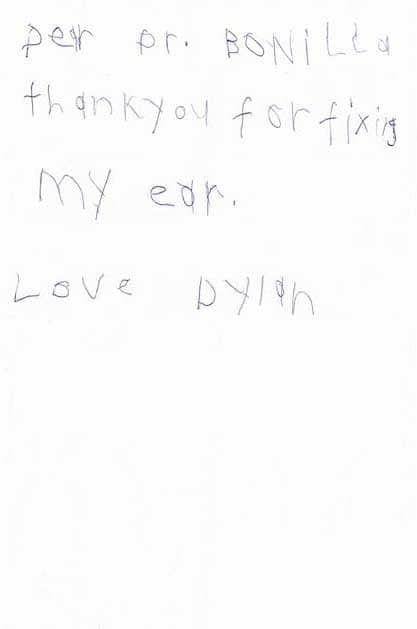 Dear Dr. BONiLLa
thankyou for fixing
My ear.
Love Dylan